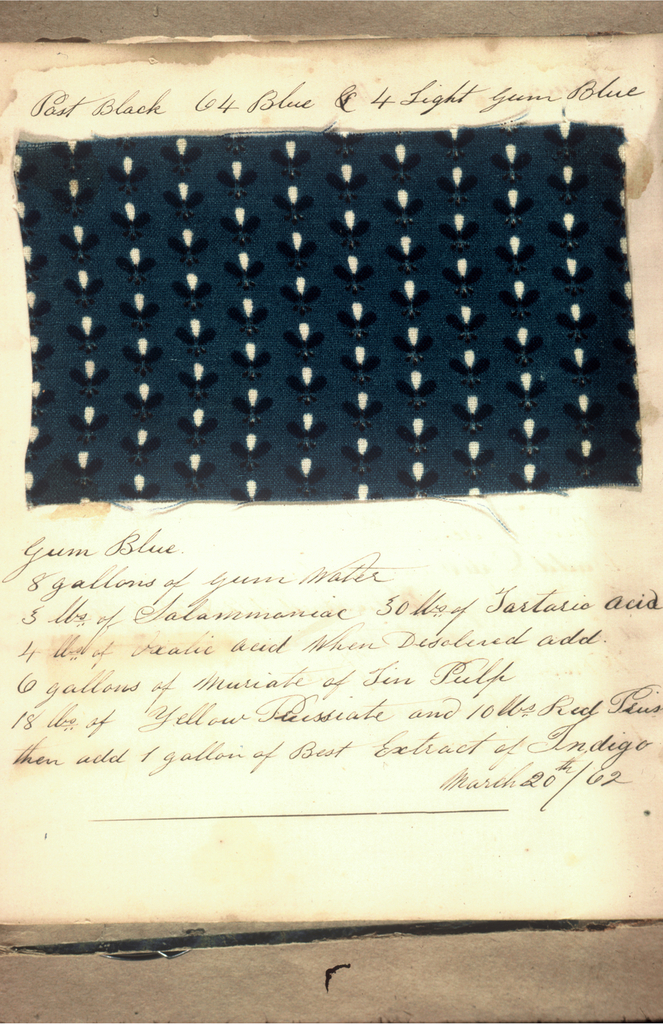 Past Black 64 Blue & 4 Light Gum Blue
Gum Blue.
8 gallons of Gum Water
3 lbs of Salammoniac 30 lbs of Tartaric acid
4 lbs of Oxalic acid When Desolved add.
6 gallons of Muriate of Tin Pulp
18 lbs of Yellow Prussiate and 10 lbs Red Prus
then add 1 gallon of Best Extract of Indigo
March 20th/62